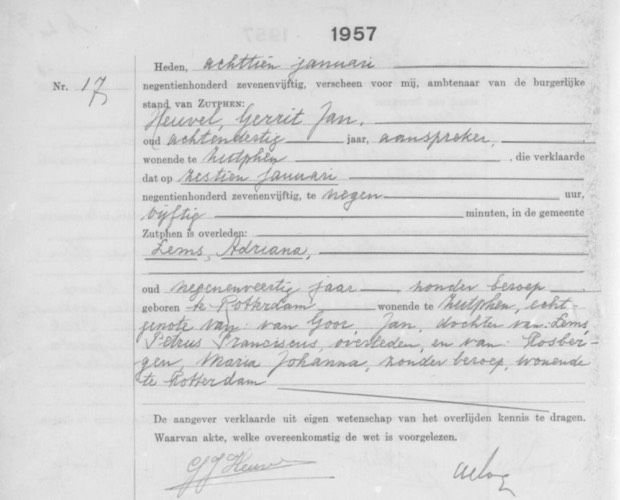 1957
Heden, achttien januari
Nr. 17
negentienhonderd zevenenvijftig, verscheen voor mij, ambtenaar van de burgerlijke
stand van ZUTPHEN:
Heuvel, Gerrit Jan,
oud achtendertig jaar, aanspreker,
wonende te Zutphen, die verklaarde
dat op zestien januari
negentienhonderd zevenenvijftig, te negen uur,
vijftig minuten, in de gemeente
Zutphen is overleden:
Lems, Adriana,
oud negenenveertig jaar, zonder beroep
geboren te Rotterdam wonende te Zutphen, echt-
genote van van Goor, Jan, dochter van: Lems,
Petrus Franciscus, overleden, en van Rosber-
gen, Maria Johanna, zonder beroep, wonende
te Rotterdam
De aangever verklaarde uit eigen wetenschap van het overlijden kennis te dragen.
Waarvan akte, welke overeenkomstig de wet is voorgelezen.
GJ Heuvel